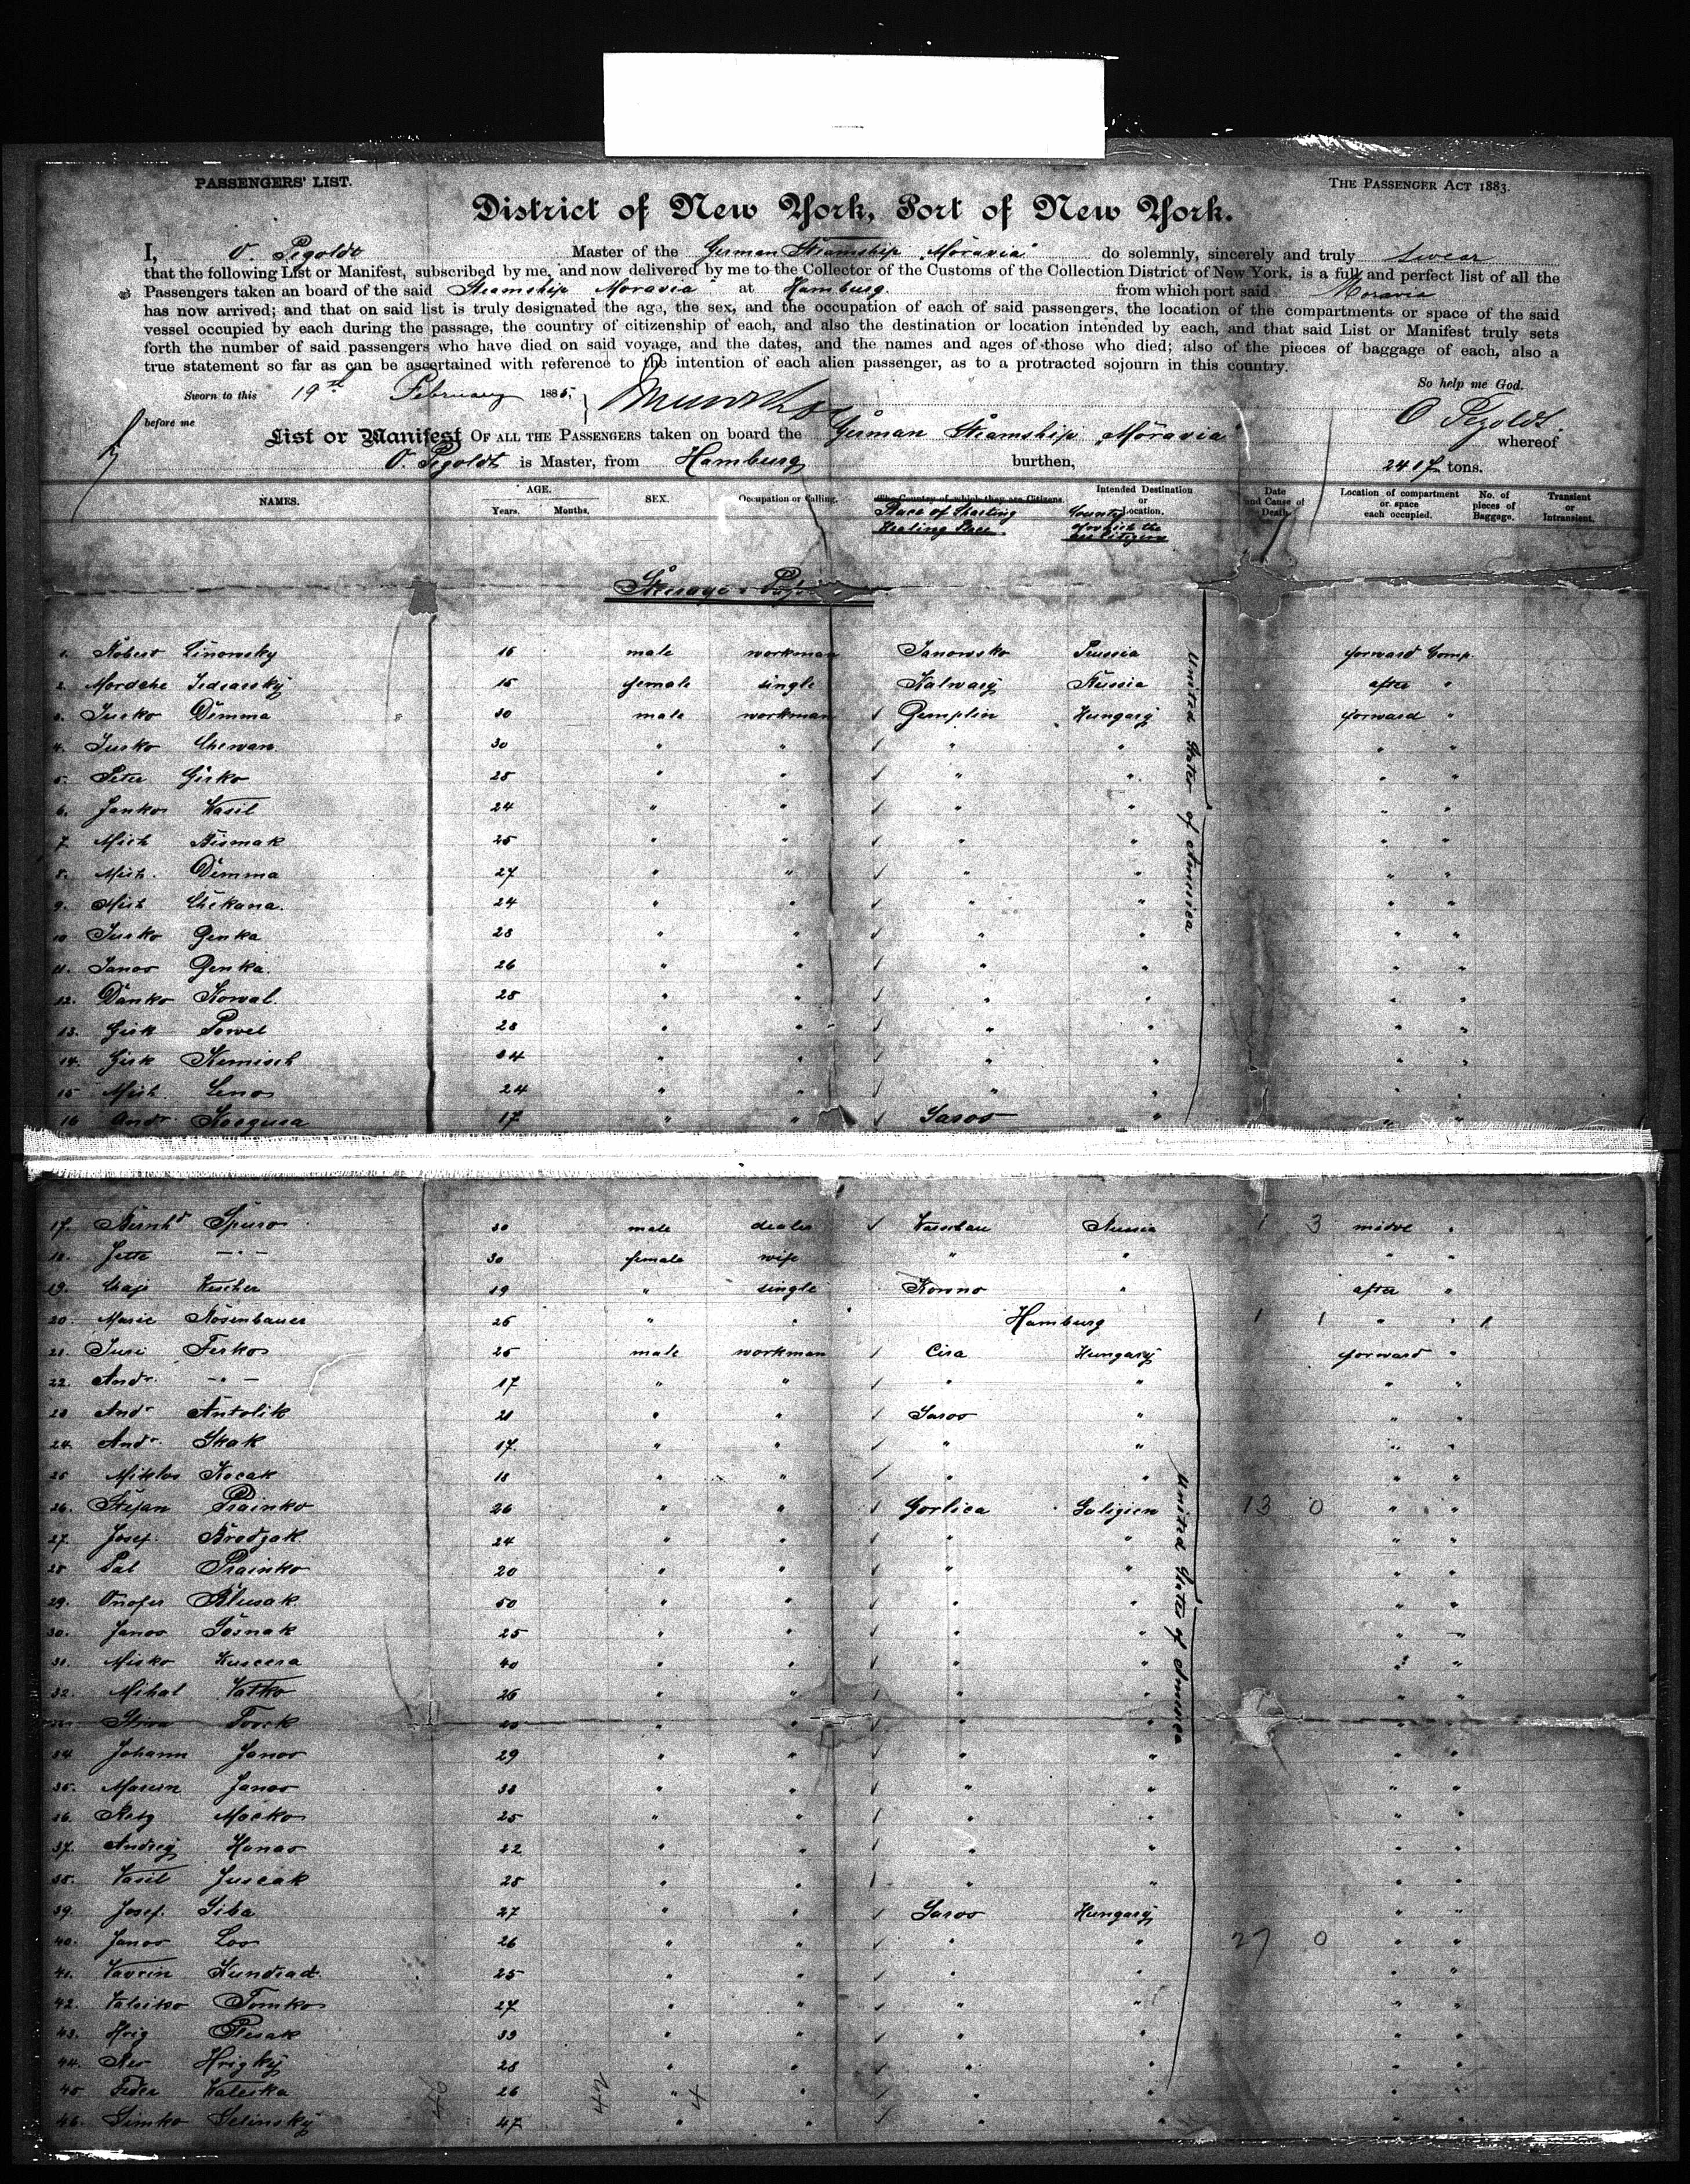 PASSENGERS' LIST. THE PASSENGER ACT 1883.
District of New York, Port of New York.
I, O. Pezoldt Master of the German Steamship "Moravia" do solemnly, sincerely and truly swear
that the following List or Manifest, subscribed by me, and now delivered by me to the Collector of the Customs of the Collection District of New York, is a full and perfect list of all the
Passengers taken an board of the said Steamship Moravia" at Hamburg. from which port said Moravia
has now arrived; and that on said list is truly designated the age, the sex, and the occupation of each of said passengers, the location of the compartments or space of the said
vessel occupied by each during the passage, the country of citizenship of each, and also the destination or location intended by each, and that said List or Manifest truly sets
forth the number of said passengers who have died on said voyage, and the dates, and the names and ages of those who died; also of the pieces of baggage of each, also a
true statement so far as can be ascertained with reference to the intention of each alien passenger, as to a protracted sojourn in this country.
So help me God.
Sworn to this 19th February 1885
before me O Pezoldt.
List or Manifest OF ALL THE PASSENGERS taken on board the German Steamship Moravia" whereof
O. Pezoldt is Master, from Hamburg burthen, 2417 tons.
NAMES. AGE. Years. Months. SEX. Occupation or Calling. The Country of which they are Citizens. Intended Destination or Location. Date and Cause of Death. Location of compartment or space each occupied. No. of pieces of Baggage. Transient or Intransient.
Place of Starting County of which the
are Citizens
Steerage
1. Robert Linowsky 16 male workman Janowsko Prussia forward Comp.
2. Mordche 15 female single Kalwary Russia after "
3. Jurko Demma 30 male workman Gemplin Hungary forward "
4. Jurko Chewan 30 " " " " " "
5. Peter Girko 25 " " " " " "
6. Janko Wasil 24 " " " " " "
7. Mich Bismak 25 " " " " " "
8. Mich. Demma 27 " " " " " "
9. Mich Chekana. 24 " " " " " "
10 Jurko Genka 28 " " " " " "
11. Janos Genka. 26 " " " " " "
12. Danko Kowal. 28 " " " " " "
13. Girk Pawel 28 " " " " " "
14. Girk Kemisch 34 " " " " " "
15 Mich. Lenos 24 " " " " " "
16 Andr. 17 " " Saros " " "
United States of America
17. Bernhd Spuro 30 male dealer Warschau Russia 1 3 middl "
18. Jette - " - 30 female wife " " " "
19. Chaje Wescher 19 " single Kowno " after "
20. Marie Rosenbauer 26 " " Hamburg 1 1 " " 1
21. Juri Ferkos 25 male workman Cira Hungary forward "
22. Andr. - " - 17 " " " " " "
23 Andr Antolik 21 " " Saros " " "
24. Andr. Skak 17. " " " " " "
25 Miklos Kocak 18 " " " " " "
26. Stefan Prainko 26 " " Gorlica Galizien 13 0 " "
27. Josef. Brodzak. 24 " " " " " "
28 Pal Prainko 20 " " " " " "
29. Onofer Blusak. 50 " " " " " "
30. Janos Sosnak 25 " " " " " "
31. Misko Kuscera 40 " " " " " "
32. Mihal Vatko 26 " " " " " "
Torok " " " " " "
34 Johann Janos 29 " " " " " "
35. Janos 33 " " " " " "
36. Macko 25 " " " " " "
37. Andrej Hanas 22 " " " " " "
38. Vasil Juscak 28 " " " " " "
39. Josef. Siba 27 " " Saros Hungary " "
40. Janos Los 26 " " " " 27 0 " "
41. Vavrin Kundrad. 25 " " " " " "
42. Tomko 27 " " " " " "
43. Hrig Plesak 33 " " " " " "
44. Hrizky 28 " " " " " "
45 Feder Waleska 26 " " " " " "
46. Simko Selinsky 47 " " " " " "
United States of America